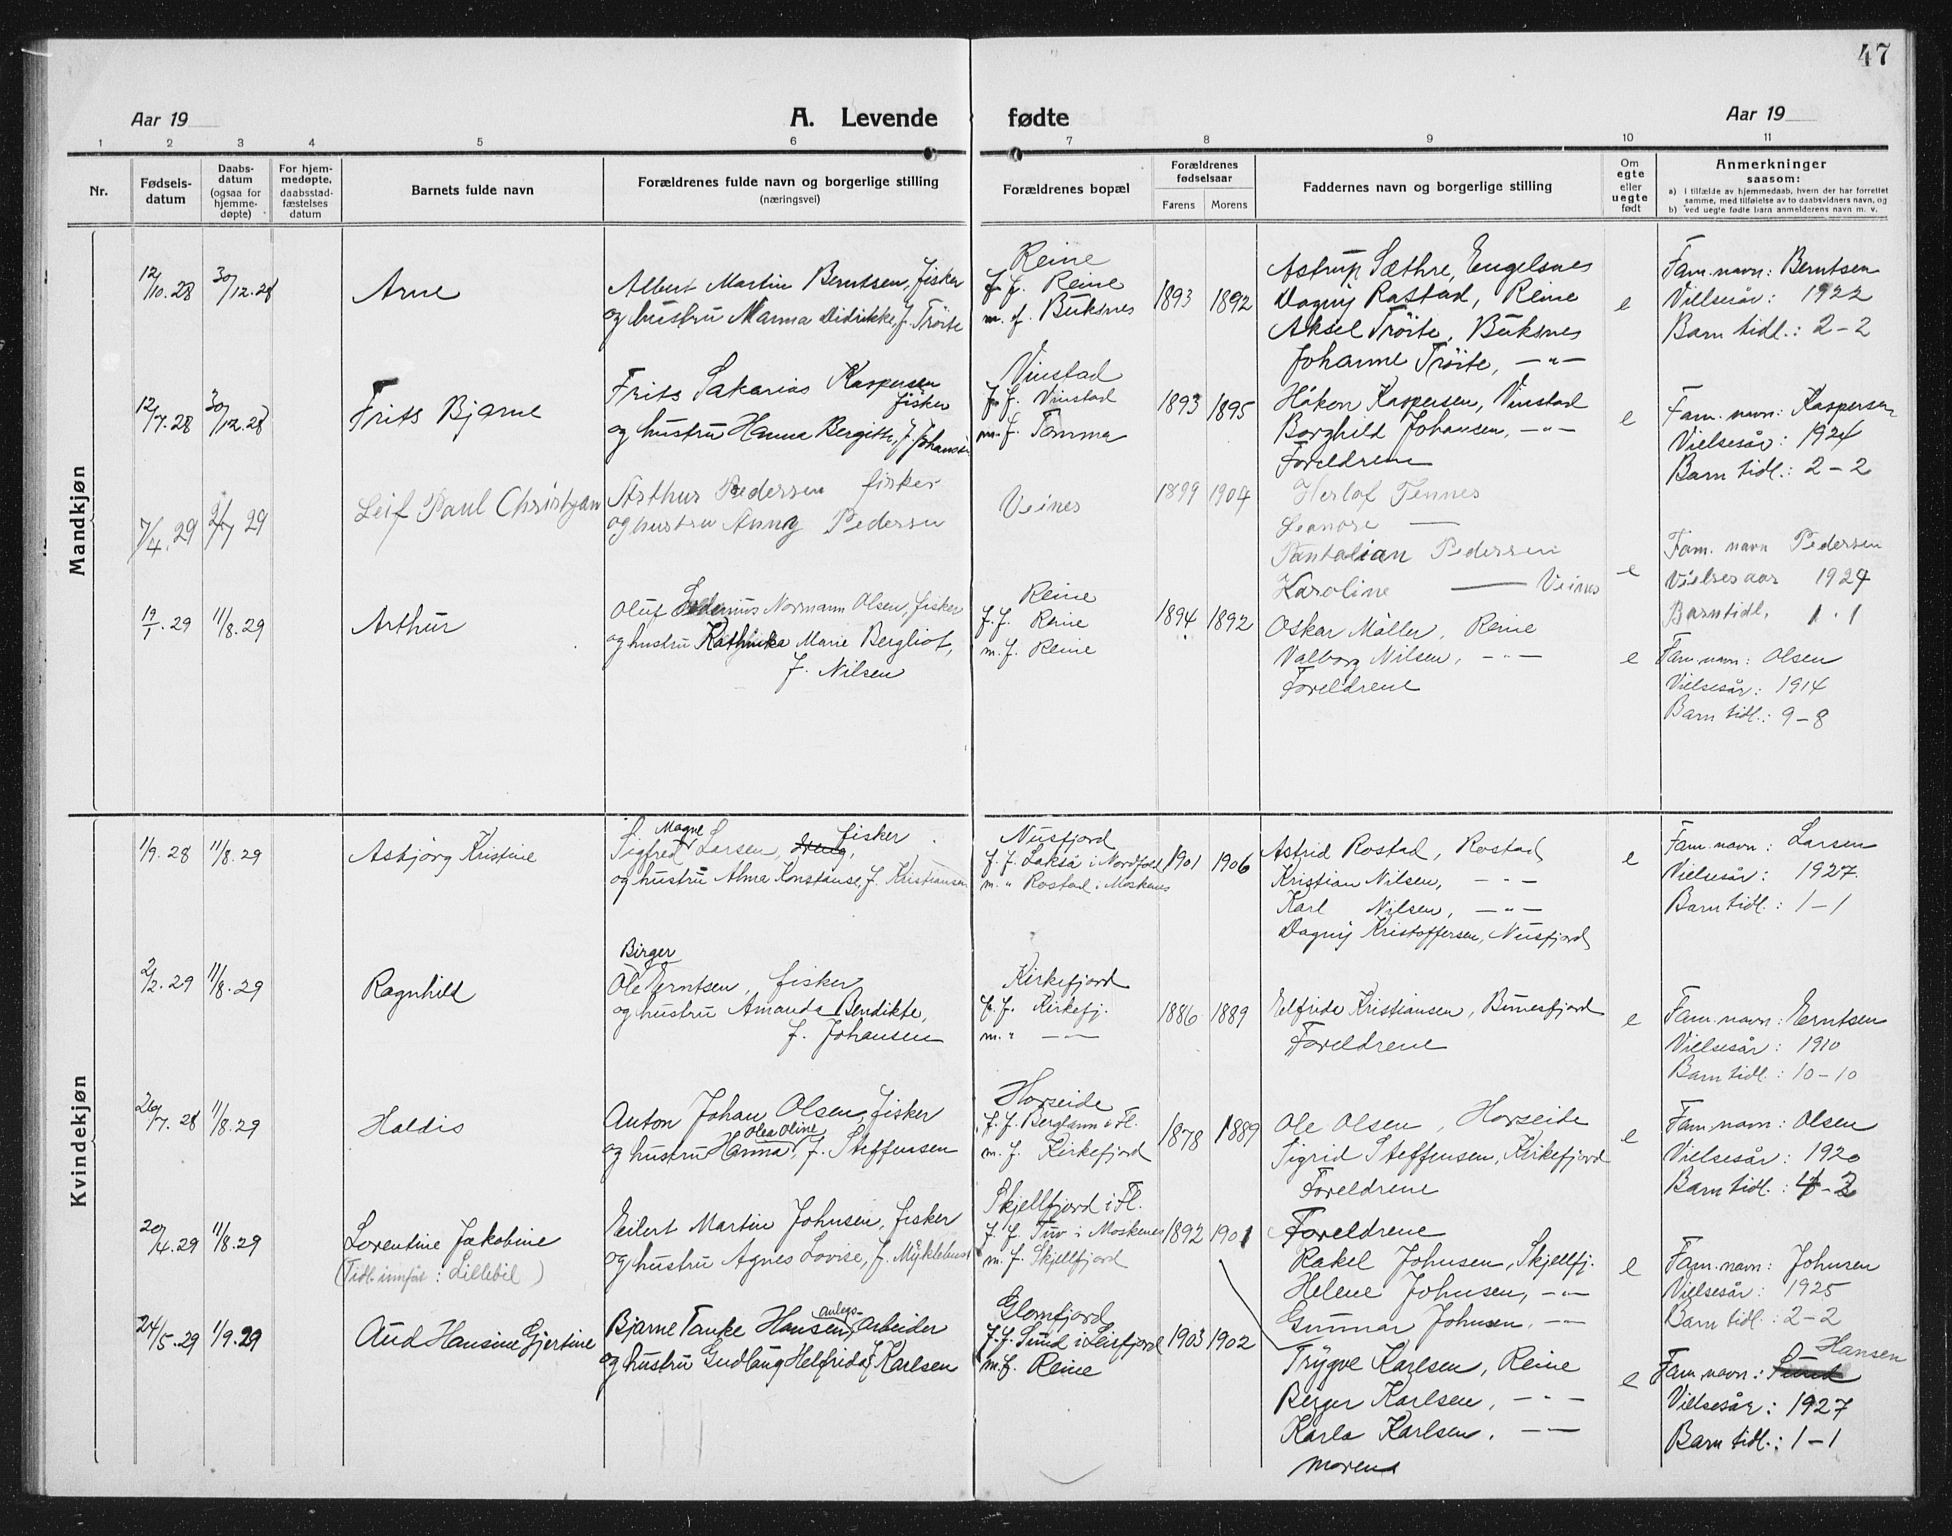 47
Aar 19
A. Levende
fødte
Aar 19
1 2 3 4 5 6 7 8 9 10 11
Nr.
Fødsels-
datum
Daabs-
datum
(ogsaa for
hjemme-
døpte)
For hjem-
medøpte,
daabsstad-
fæstelses
datum
Barnets fulde navn
Forældrenes fulde navn og borgerlige stilling
(næringsvei)
Forældrenes bopæl
Forældrenes
fødselsaar
Farens Morens
Faddernes navn og borgerlige stilling
Om
egte
eller
uegte
født
Anmerkninger
saasom:
a) i tilfælde av hjemmedaab, hvem der har forrettet
samme, med tilføielse av to daabsvidners navn, og
b) ved uegte fødte barn anmelderens navn m. v.
Mandkjøn
12/10.28 30/12.28
Arne
Albert Martin Berntsen, fisker
og hustru Marina Didrikke, f. Tröite
Reine
f. f. Reine
m. f. Buksnes
1893 1892
Astrup Sæthre, Engelsnes
Dagny Rostad, Reine
Aksel Tröite, Buksnes
Johanne Tröite, —"—
e
Fam.navn: Berntsen
Vielsesår: 1922
Barn tidl.: 2-2
12/7.28 30/12.28
Frits Bjarne
Frits Sakarias Kaspersen
fisker
og hustru Hanna Bergitte, f. Johansen
Vinstad
f. f. Vinstad
m. f. Tomma
1893 1895
Håkon Kaspersen, Vinstad
Borghild Johansen, —"—
Foreldrene
e
Fam. navn: Kaspersen
Vielsesår: 1924
Barn tidl.: 2-2
7/4.29 21/7 29
Leif Paul Christyan
Arthur Pedersen fisker
og hustru Anny Pedersen
Veines
1899 1904
Herlof Tennes
Leanore —
Pantalian Pedersen
Karoline — Veines
e
Fam. navn Pedersen
Vielsesaar 1927
Barn tidl. 1.1
19/1.29 11/8.29
Arthur
Oluf Normann Olsen, fisker
og hustru Kathinka Marie Bergliot,
f. Nilsen
Reine
f. f. Reine
m. f. Reine
1894 1892
Oskar Möller, Reine
Valborg Nilsen, —"—
Foreldrene
e
Fam. navn: Olsen
Vielsesår: 1914
Barn tidl.: 9-8
Kvindekjøn
1/9.28 11/8.29
Asbjörg Kristine
Magne fisker
Sigfred Larsen,
og hustru Alma Konstanse, f. Kristiansen
Nusfjord
f. f. Lakså i Nordfold
m. " Rostad i Moskenes
1901 1906
Astrid Rostad, Rostad
Kristian Nilsen, —"—
Karl Nilsen, —"—
Dagny Kristoffersen, Nusfjord
e
Fam. navn: Larsen
Vielsesår: 1927.
Barn tidl.: 1-1
2/2.29 11/8.29
Ragnhild
Birger
Ole Erntsen, fisker
og hustru Amanda Bendikte,
f. Johansen
Kirkefjord
f. f. Kirkefj.
m. " —
1886 1889
Elfride Kristiansen, Bunesfjord
Foreldrene
e
Fam. navn: Erntsen
Vielsesår: 1910
Barn tidl.: 10-10
26/7.28 11/8.29
Haldis
Anton Johan Olsen, fisker
Olea Oline
og hustru Hanna, f. Steffensen
Horseide
f. f. Berglann i Fl.
m. f. Kirkefjord
1878 1889
Ole Olsen, Horseide
Sigrid Steffensen, Kirkefjord
Foreldrene
e
Fam. navn: Olsen
Vielsesår: 1920
Barn tidl.: 4-3
20/4.29 11/8.29
Lorentine Jakobine
(Tidl. innfört: Lillebil)
Eilert Martin Johnsen, fisker
og hustru Agnes Lovise, f. Myklebust
Skjellfjord i Fl.
f. f. Tuv i Moskenes
m. f. Skjellfjord
1892 1901
Foreldrene
Rakel Johnsen, Skjellfj.
Helene Johnsen, —"—
Gunnar Johnsen, —"—
e
Fam. navn: Johnsen
Vielsesår: 1925
Barn tidl.: 2-2
24/5.29 1/9.29
Aud Hansine Gjertine
anlegs-
Bjarne Tanke Hansen, arbeider
og hustru Gudlaug Helfrida f. Karlsen
Glomfjord
f. f. Sund i Leirfjord
m. f. Reine
1903 1902
Trygve Karlsen, Reine
Berger Karlsen, —"—
Karla Karlsen, —"—
Moren
e
Hansen
Fam. navn: Sund
Vielsesår: 1927
Barn tidl.: 1-1